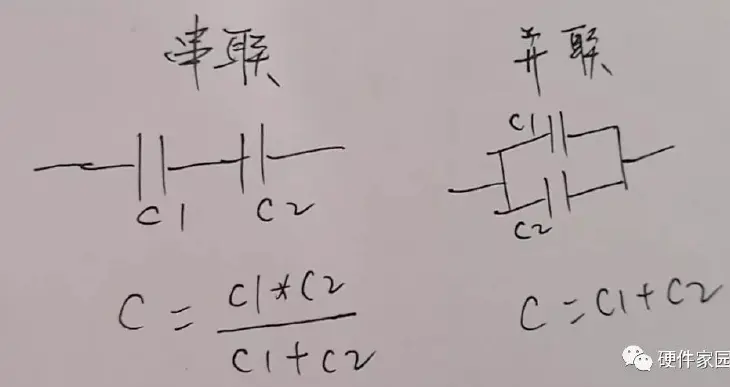 串联
并联
C1
C2
C1
C2
C = C1*C2 / C1+C2
C=C1+C2
硬件家园